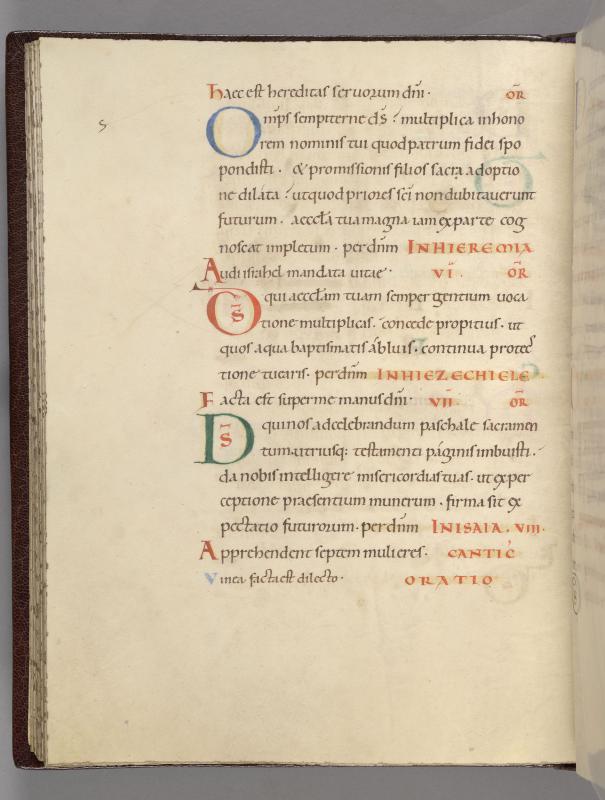 Haec est hereditas servorum dñi · OR̄
Om̄ps sempiterne d̄s multiplica inhono
rem nominis tui quodpatrum fidei spo
pondisti · & promissionis filios sacra adoptio
ne dilata utquod priores sc̄i non dubitaverunt
futurum · aeccl̄a tua magna iam ex parte cog
noscat impletum · per dn̄m INHIEREMIA
Audi israhel mandata vitae · VI · OR̄
D̄s qui aeccl̄am tuam semper gentium voca
tione multiplicas · concede propitius · ut
quos aqua baptismatis abluis · continua protec
tione tuearis · per dn̄m INHIEZECHIELE
Facta est super me manus dn̄i · VII · OR̄
D̄s qui nos adcelebrandum paschale sacramen
tum utriusq: testamenti paginis imbuisti ·
da nobis intelligere misericordias tuas · ut ex per
ceptione praesentium munerum · firma sit ex
pectatio futurorum · per dn̄m INISAIA · VIII ·
Apprehendent septem mulieres · CANTIC̄
Vinea facta est dilecto · ORATIO